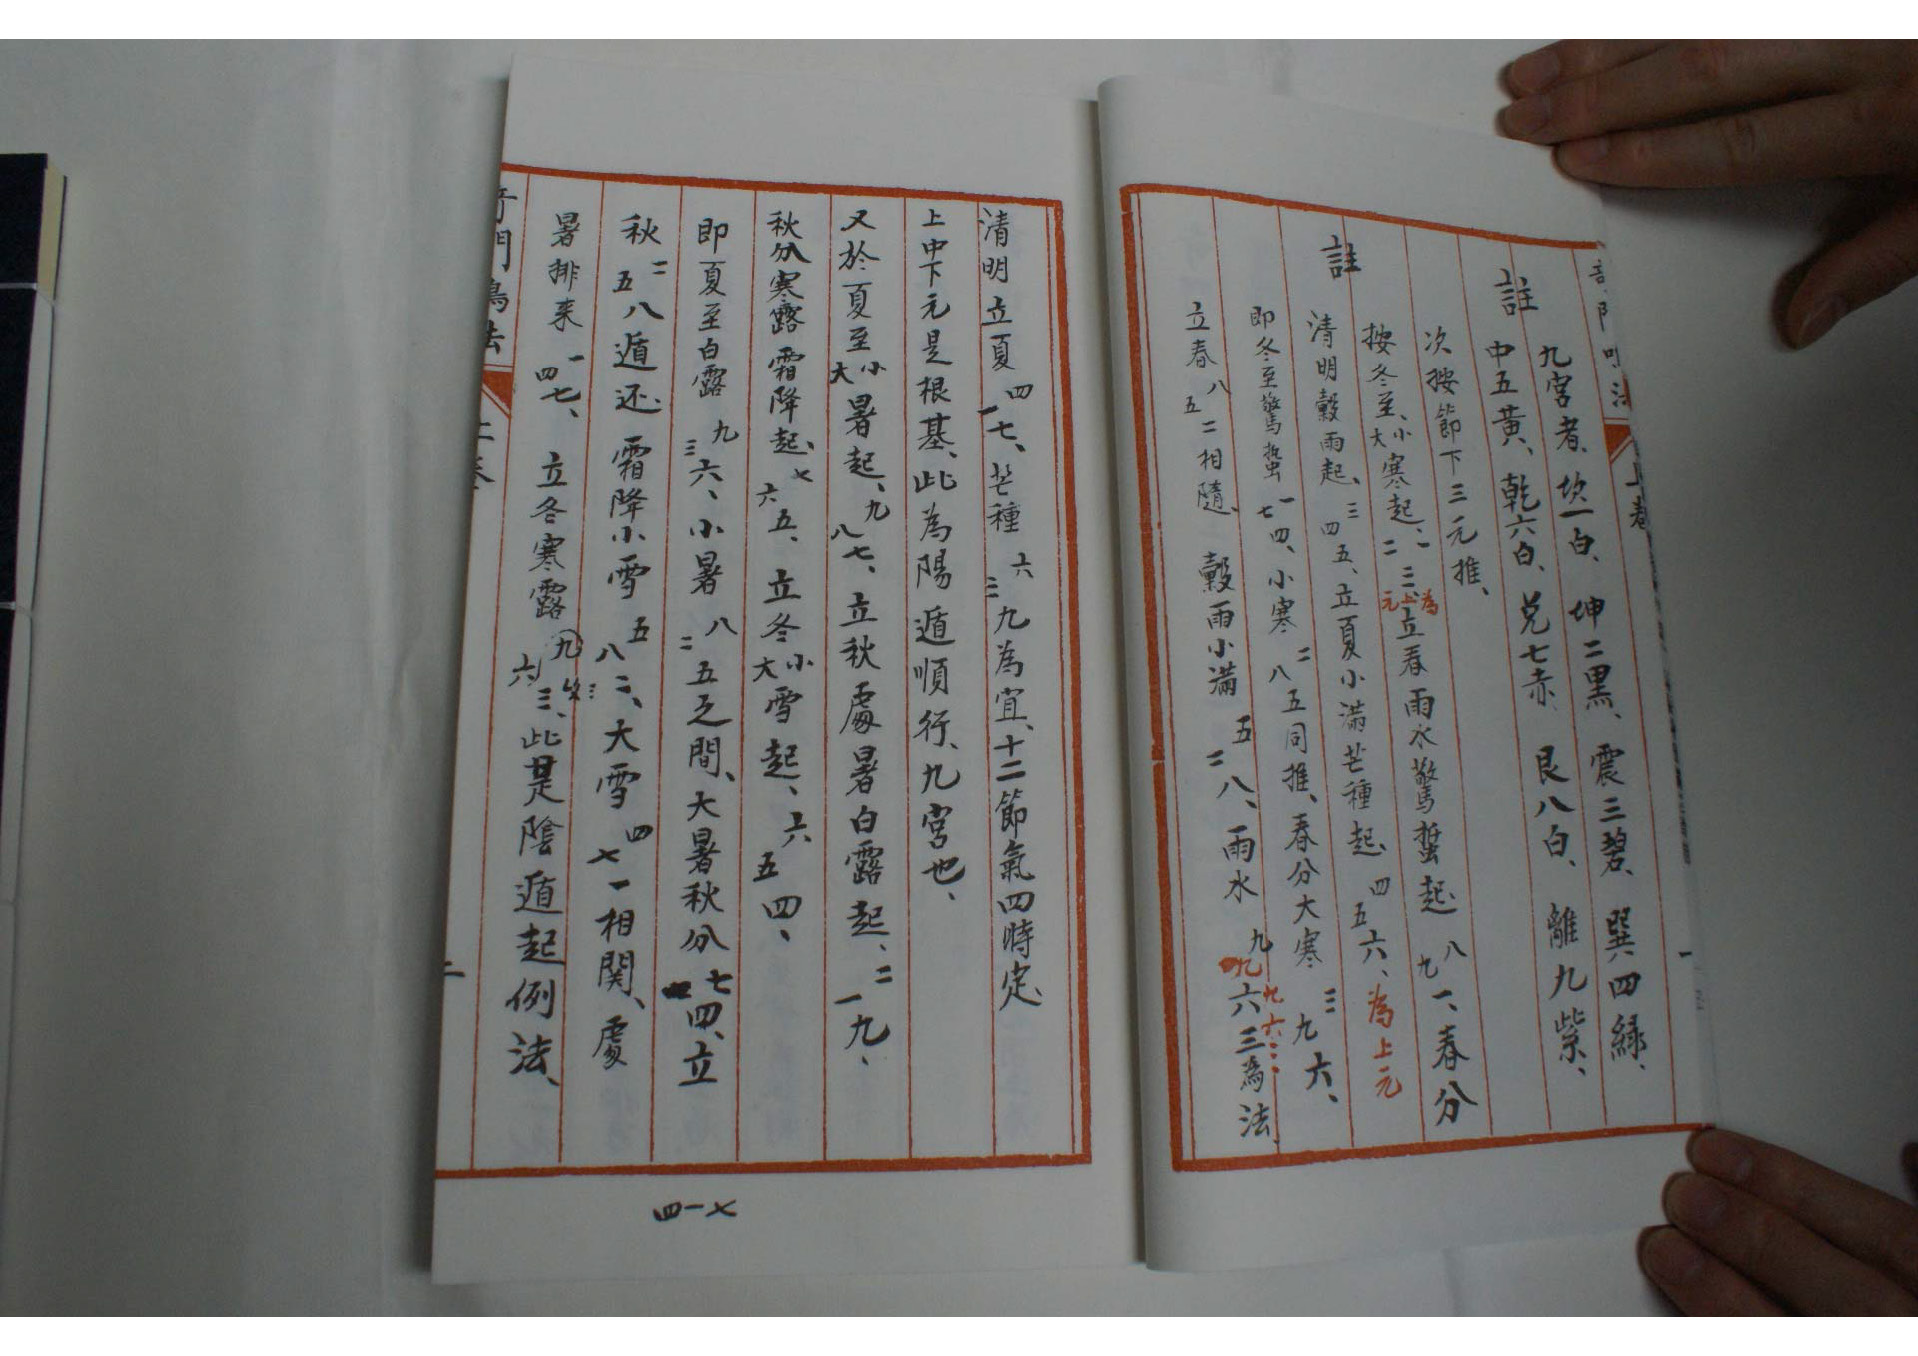 九宮者、坎一白、坤二黑、震三碧、巽四綠、
註
中五黃、乾六白、兌七赤、艮八白、離九紫、
次按節下三元推、
按冬至、小大寒起、一二三、為上元立春雨水驚蟄起、八九一、春分
註
清明穀雨起、三四五、立夏小滿芒種起、四五六、為上元
即冬至驚蟄一七四、小寒二八五同推、春分大寒三九六、
立春八五二相隨、穀雨小滿五二八、雨水九六三為法、
九六三
上卷
一
清明立夏四一七、芒種六三九為宜、十二節氣四時定、
上中下元是根基、此為陽遁順行、九宮也、
又於夏至小大暑起、九八七、立秋處暑白露起、二一九、
秋分寒露霜降起、七六五、立冬小大雪起、六五四、
即夏至白露九三六、小暑八二五之間、大暑秋分七四、立
秋二五八遁还、霜降小雪五八二、大雪四七一相関、處
暑排来一四七、立冬寒露九六三、此是陰遁起例法、
門鳴法
二
四一七